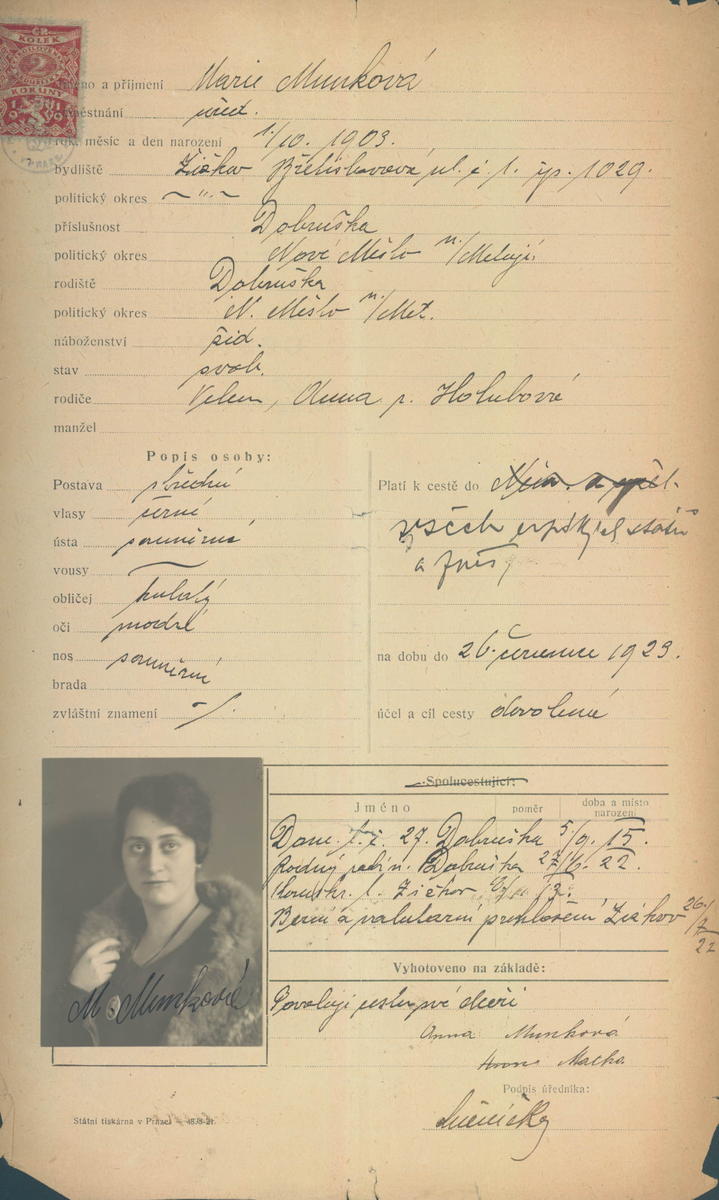 ČR
KOLEK
2
KORUNY
Jméno a příjmení Marie Munková
zaměstnání úřed.
rok, měsíc a den narození 1/10. 1903.
bydliště Žižkov Břetislavova ul. č. 1. čp. 1029.
politický okres — " —
příslušnost Dobruška
politický okres Nové Město n/Metují
rodiště Dobruška
politický okres N. Město n/Met.
náboženství žid.
stav svob.
rodiče Anna r. Holubové
manžel
Popis osoby:
Postava střední
vlasy černé
ústa souměrná
vousy —
obličej kulatý
oči modré
nos souměrný
brada
zvláštní znamení —/.
Platí k cestě do
všech států
a
na dobu do 26. července 1923.
účel a cíl cesty dovolená
Spolucestující:
Jméno poměr doba a místo narození
Dom. l. č. 27. Dobruška 5/9. 15.
Rodný Dobruška 27/6. 22.
l. Žižkov
Berní a valutární prohlášení Žižkov 26/7 22
Vyhotoveno na základě:
Povoluji cestu své dceři
Anna Munková
Matka
Podpis úředníka:
M. Munková
Státní tiskárna v Praze.